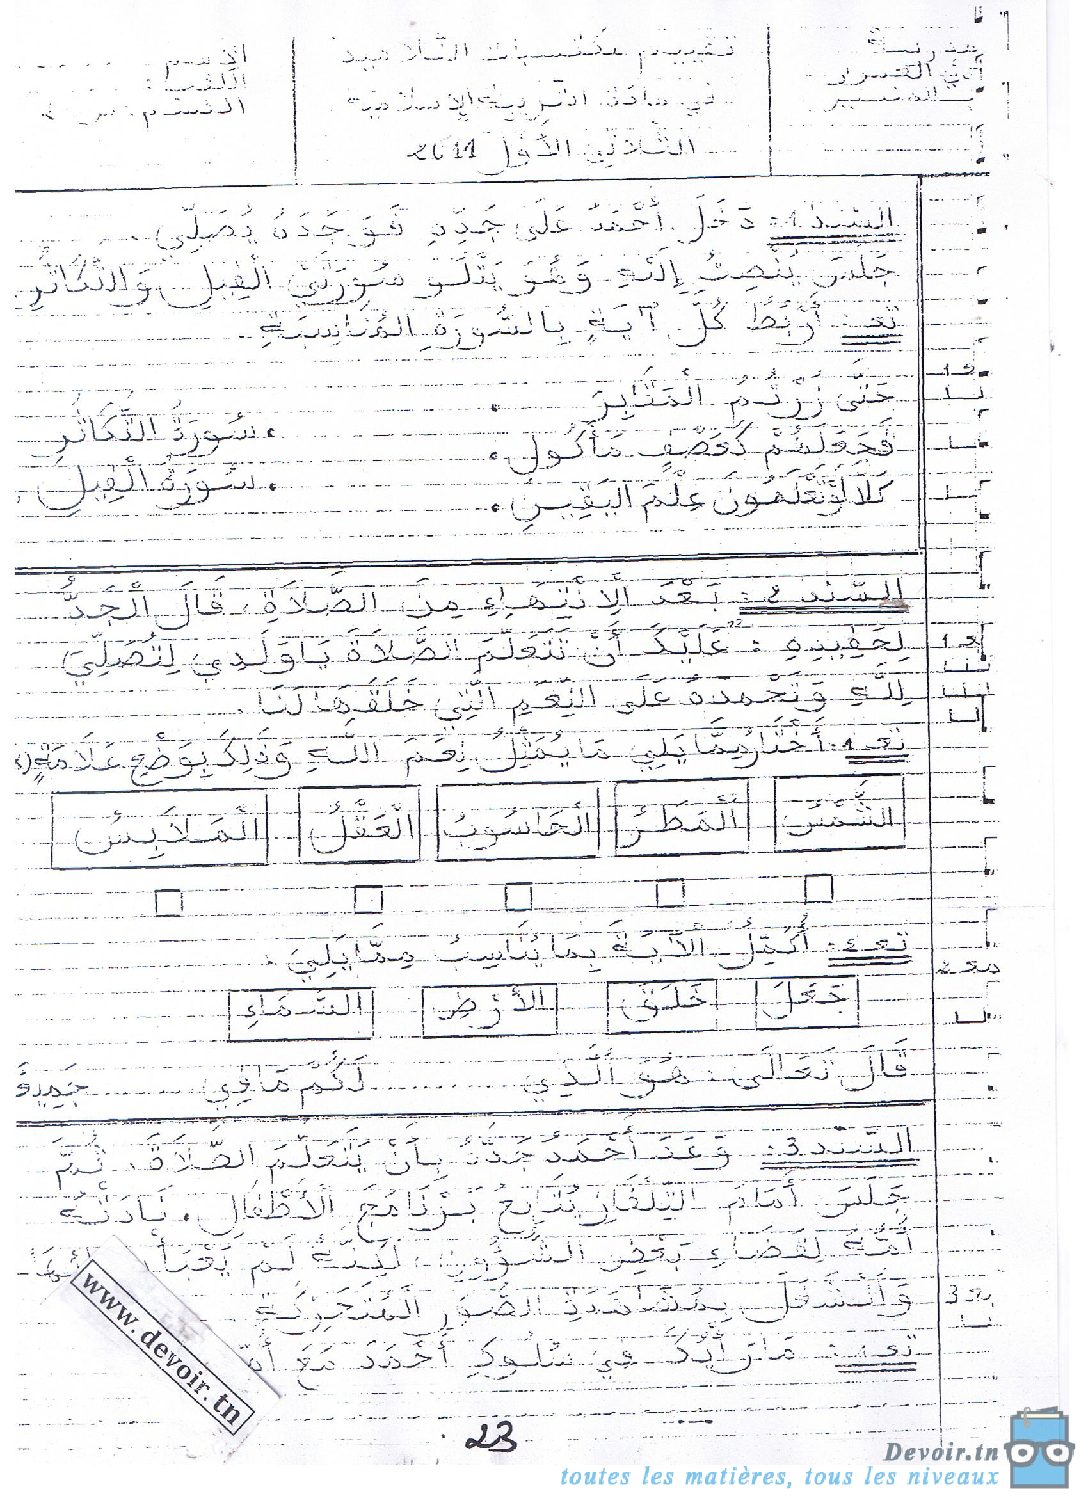 مدرسة
تقييم مكتسبات التلاميذ
الاسم
في مادة التربية الإسلامية
اللقب :
القسم
الثلاثي الأول 2011
السند 1: دَخَلَ أَحْمَدُ عَلَى جَدِّهِ فَوَجَدَهُ يُصَلِّي.
جَلَسَ يُنْصِتُ إِلَيْهِ وَهُوَ يَتْلُو سُورَتَيْ الْفِيلِ وَالتَّكَاثُرِ.
تع: أَرْبِطُ كُلَّ آيَةٍ بِالسُّورَةِ المُنَاسِبَةِ.
حَتَّى زُرْتُمُ الْمَقَابِرَ .
. سُورَةُ التَّكَاثُرِ
فَجَعَلَهُمْ كَعَصْفٍ مَأْكُولٍ .
. سُورَةُ الْفِيلِ
كَلَّا لَوْ تَعْلَمُونَ عِلْمَ اليَقِينِ .
السّند 2 : بَعْدَ الِانْتِهَاءِ مِنَ الصَّلَاةِ، قَالَ الْجَدُّ
لِحَفِيدِهِ : عَلَيْكَ أَنْ تَتَعَلَّمَ الصَّلَاةَ يَا وَلَدِي لِتُصَلِّيَ
لِلَّهِ وَتَحْمِدَهُ عَلَى النِّعَمِ الَّتِي خَلَقَهَا لَنَا.
تع 1: أَخْتَارُ مِمَّا يَلِي مَا يُمَثِّلُ نِعَمَ اللهِ وَذَلِكَ بِوَضْعِ عَلَامَةِ (x)
الشَّمْسُ الْمَطَرُ الْحَاسُوبُ الْعَقْلُ الْمَلَابِسُ
تع 2: أُكْمِلُ الْآيَةَ بِمَا يُنَاسِبُ مِمَّا يَلِي :
جَعَلَ خَلَقَ الأَرْضِ السَّمَاءِ
قَالَ تَعَالَى : هُوَ الَّذِي ........ لَكُمْ مَا فِي ........ جَمِيعًا
السَّنْد 3: وَعَدَ أَحْمَدُ جَدَّهُ بِأَنْ يَتَعَلَّمَ الصَّلَاةَ، ثُمَّ
جَلَسَ أَمَامَ التِّلْفَازِ يُتَابِعُ بَرْنَامَجَ الْأَطْفَالِ. نَادَتْهُ
أُمُّهُ لِقَضَاءِ بَعْضِ الشُّؤُونِ، لَكِنَّهُ لَمْ يَعْبَأْ
وَانْشَغَلَ بِمُشَاهَدَةِ الصُّوَرِ الْمُتَحَرِّكَةِ
تع 1: مَا رَأْيُكَ فِي سُلُوكِ أَحْمَدَ مَعَ
www.devoir.tn
23
Devoir.tn
toutes les matières, tous les niveaux